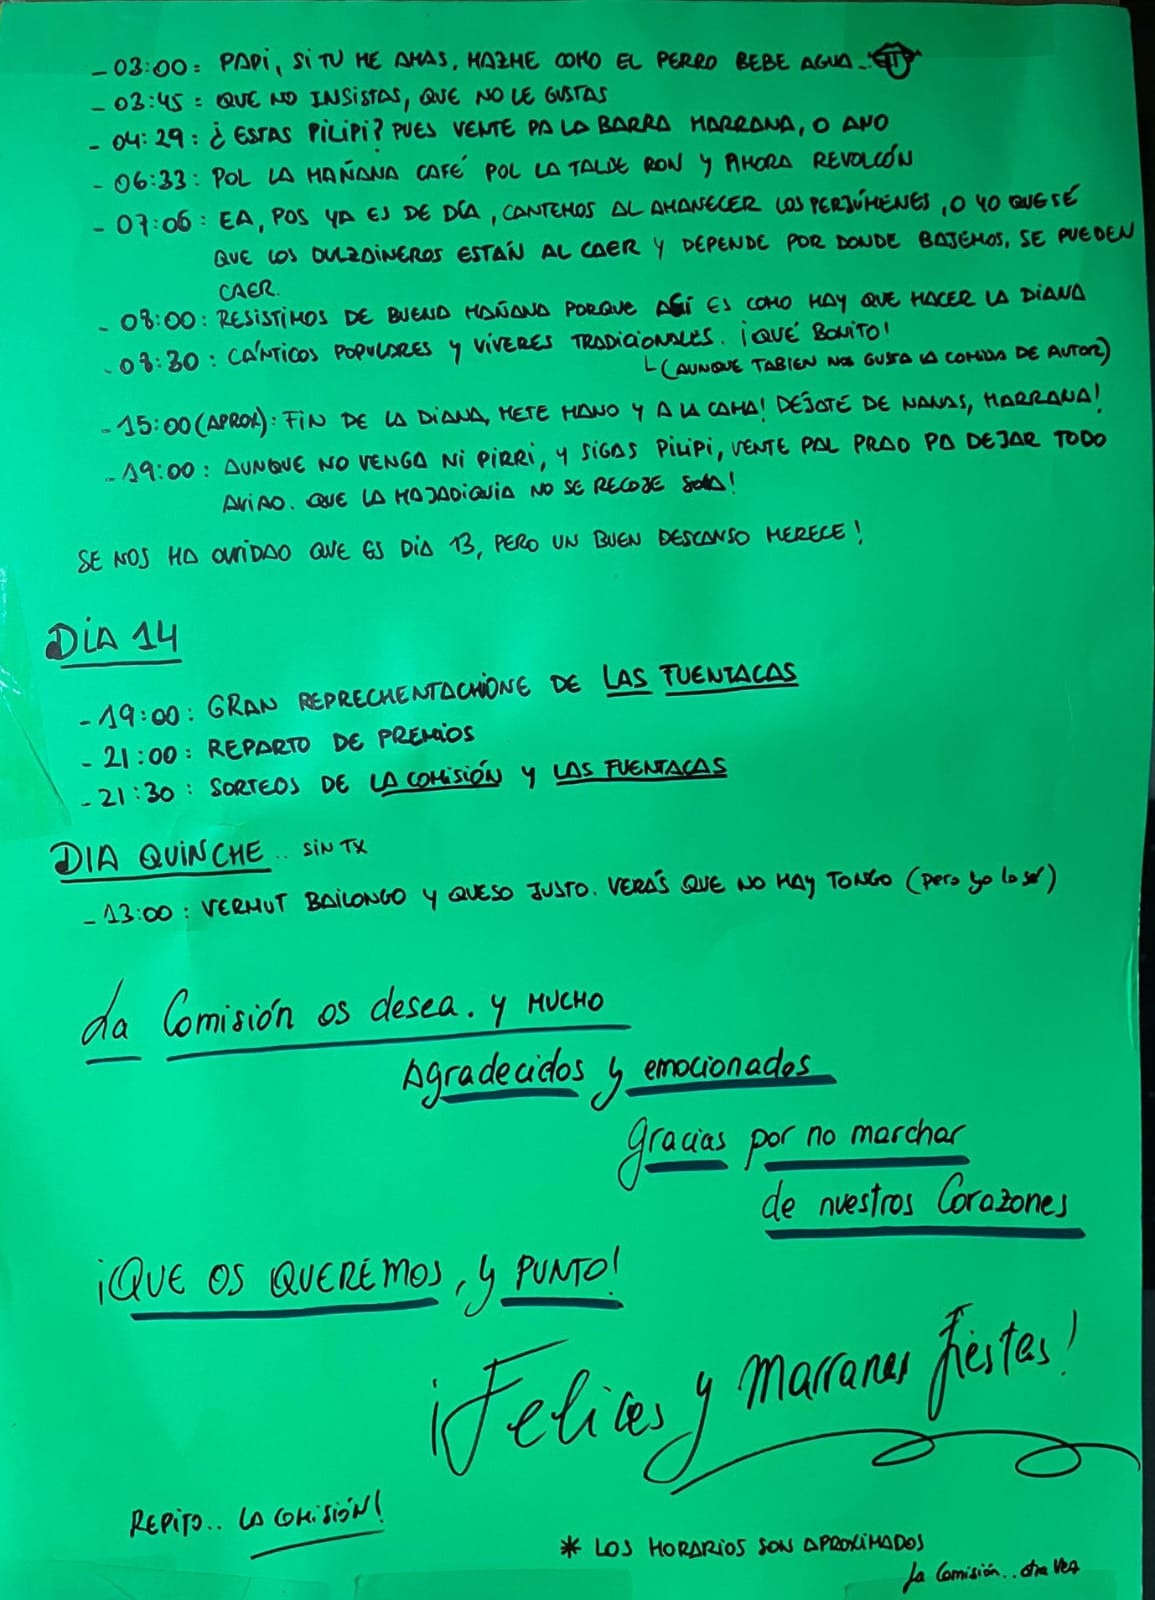 - 03:00: PAPI, SI TU ME AMAS, HAZME COMO EL PERRO BEBE AGUA...
- 03:45: QUE NO INSISTAS, QUE NO LE GUSTAS
- 04:29: ¿ESTAS PILIPI? PUES VENTE PA LA BARRA MARRANA, O ANO
- 06:33: POL LA MAÑANA CAFÉ POL LA TALDE RON Y AHORA REVOLCÓN
- 07:06: EA, POS YA ES DE DÍA, CANTEMOS AL AMANECER LOS PERJÚMENES, O YO QUE SÉ
QUE LOS DULZAINEROS ESTÁN AL CAER Y DEPENDE POR DONDE BAJEMOS, SE PUEDEN
CAER.
- 08:00: RESISTIMOS DE BUENA MAÑANA PORQUE ASÍ ES COMO HAY QUE HACER LA DIANA
- 08:30: CÁNTICOS POPULARES Y VÍVERES TRADICIONALES. ¡QUÉ BONITO!
(AUNQUE TABIEN NOS GUSTA LA COMIDA DE AUTOR)
- 15:00 (APROX): FIN DE LA DIANA, METE MANO Y A LA CAMA! DÉJATE DE NANAS, MARRANA!
- 19:00: AUNQUE NO VENGA NI PIRRI, Y SIGAS PILIPI, VENTE PAL PRAO PA DEJAR TODO
AVIAO. QUE LA MAJADIQUIA NO SE RECOJE SOLA!
SE NOS HA OLVIDAO QUE ES DÍA 13, PERO UN BUEN DESCANSO MERECE!
DÍA 14
- 19:00: GRAN REPRECHENTACHIONE DE LAS FUENTACAS
- 21:00: REPARTO DE PREMIOS
- 21:30: SORTEOS DE LA COMISIÓN Y LAS FUENTACAS
DIA QUINCHE.. SIN TX
- 13:00: VERMUT BAILONGO Y QUESO JUSTO. VERÁS QUE NO HAY TONGO (pero yo lo sé)
La Comisión os desea. Y MUCHO
Agradecidos y emocionados
gracias por no marchar
de nuestros Corazones
¡QUE OS QUEREMOS, Y PUNTO!
¡Felices y Marranas fiestas!
REPITO.. LA COMISIÓN!
* LOS HORARIOS SON APROXIMADOS
La Comisión.. otra vez